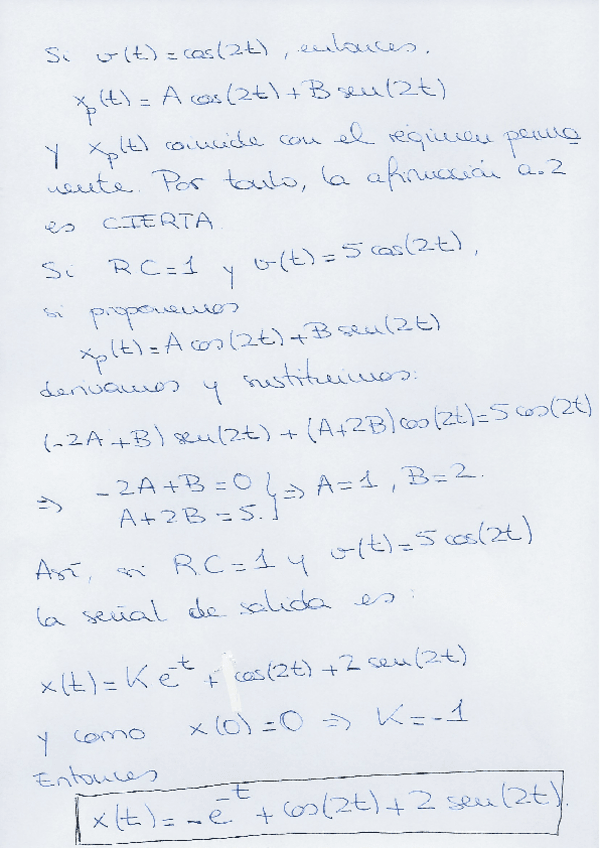 Si v(t) = cos(2t), entonces.
xp(t) = A cos(2t) + B sen(2t)
y xp(t) coincide con el régimen perma
nente. Por tanto, la afirmación a.2
es CIERTA
Si RC=1 y v(t) = 5 cos(2t),
si proponemos
xp(t) = A cos(2t) + B sen(2t)
derivamos y sustituimos:
(-2A+B) sen(2t) + (A+2B) cos(2t) = 5 cos(2t)
⇒ -2A+B=0 } ⇒ A=1, B=2.
A+2B=5.
Así, si RC=1 y v(t)=5cos(2t)
la señal de salida es:
x(t) = K e^-t + cos(2t) + 2 sen(2t)
y como x(0)=0 ⇒ K=-1
Entonces
x(t) = -e^-t + cos(2t) + 2 sen(2t).